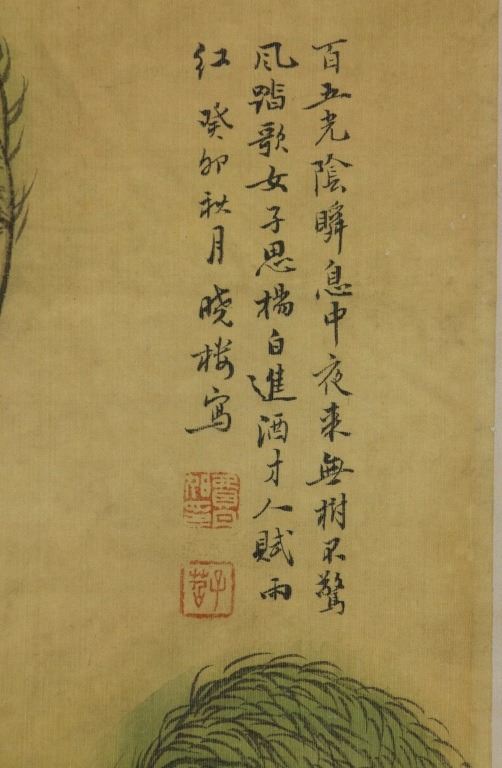 百五光陰瞬息中夜來無樹不驚
风踏歌女子思楊白進酒才人賦雨
红 癸卯秋月曉楼寫